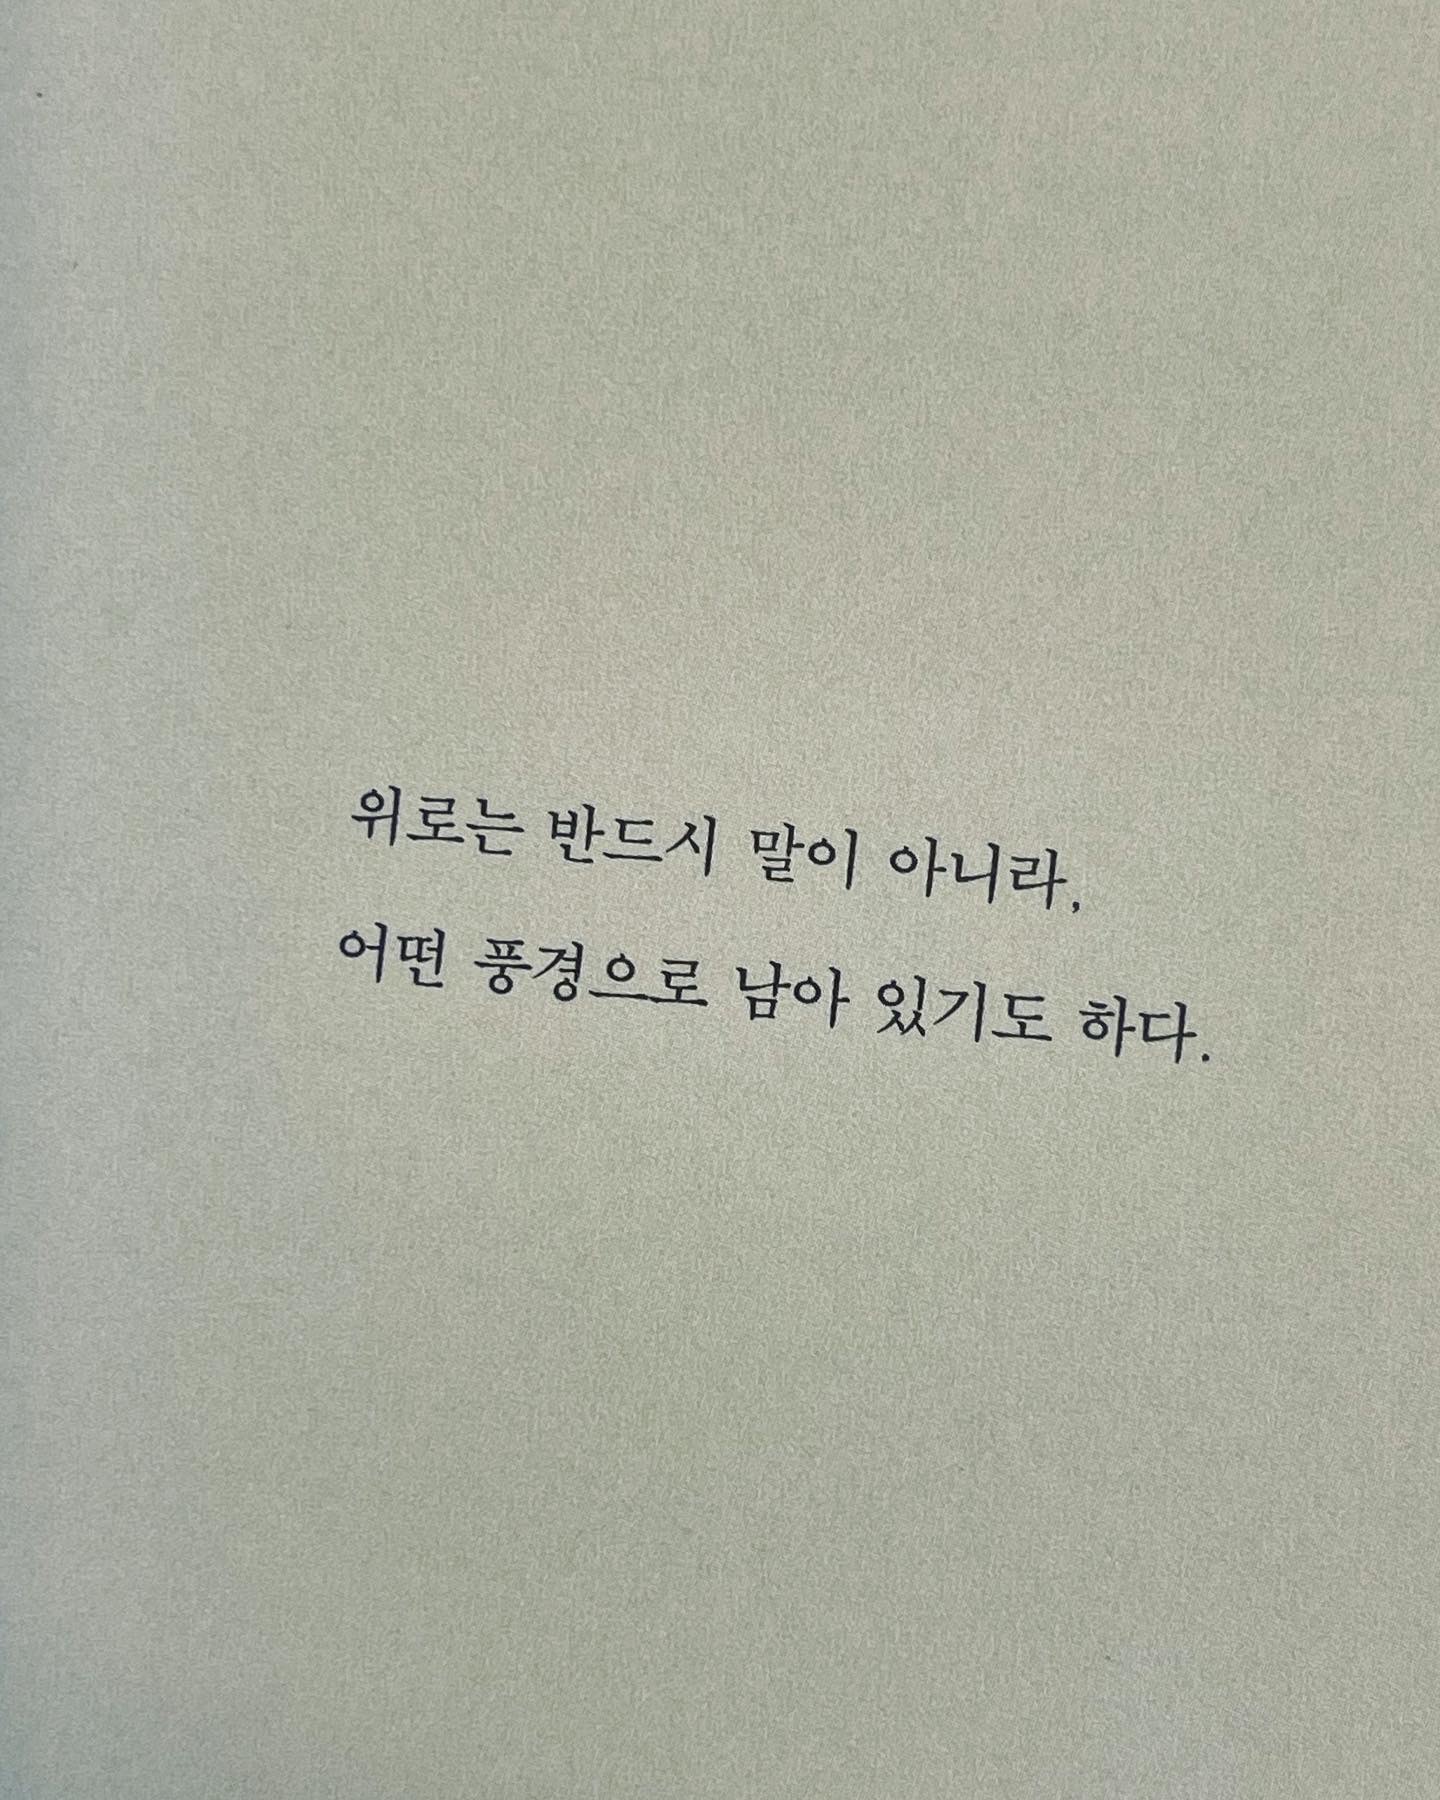 위로는 반드시 말이 아니라,
어떤 풍경으로 남아 있기도 하다.